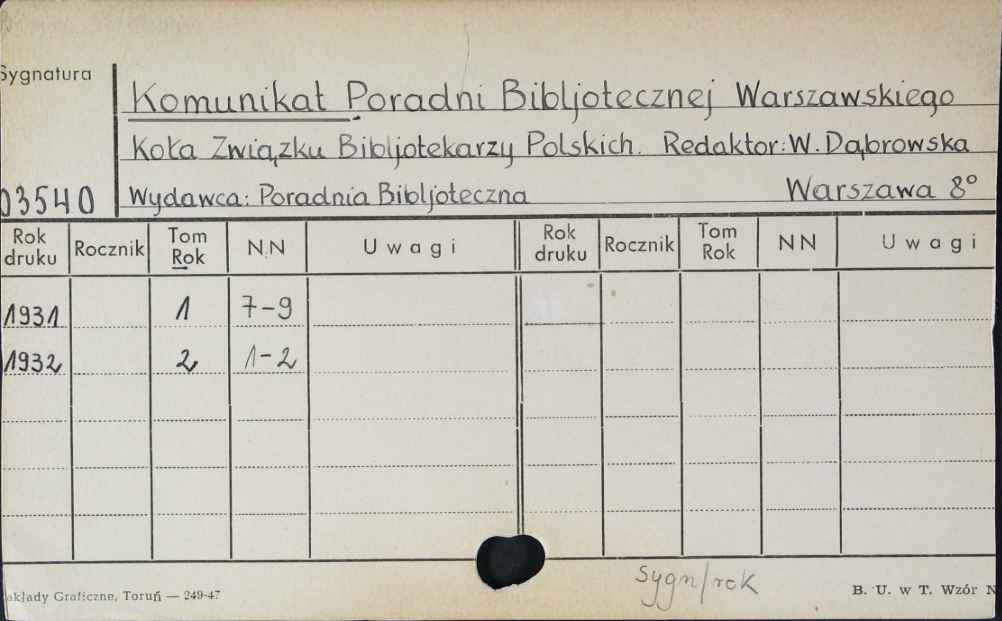 Sygnatura
Komunikat Poradni Bibljotecznej Warszawskiego
Koła Związku Bibljotekarzy Polskich. Redaktor: W. Dąbrowska
03540
Wydawca: Poradnia Bibljoteczna Warszawa 8°
Rok druku Rocznik Tom Rok N.N Uwagi Rok druku Rocznik Tom Rok NN Uwagi
1931 1 7-9
1932 2 1-2
Sygn/rok
akłady Graficzne, Toruń — 249-47 B. U. w T. Wzór N